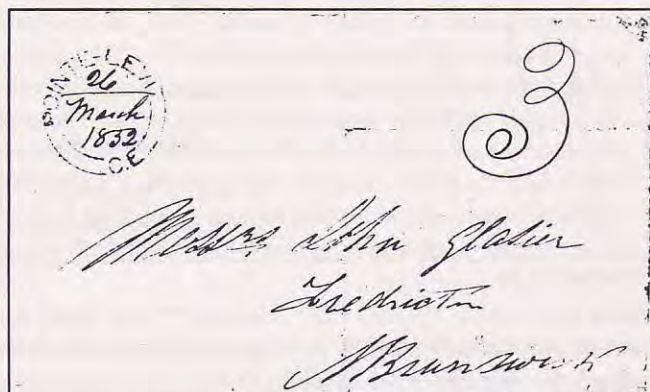 POINTE-LEVI
26
March
1852
C.E
3
Messrs John Glasier
Fredricton
NBrunswick